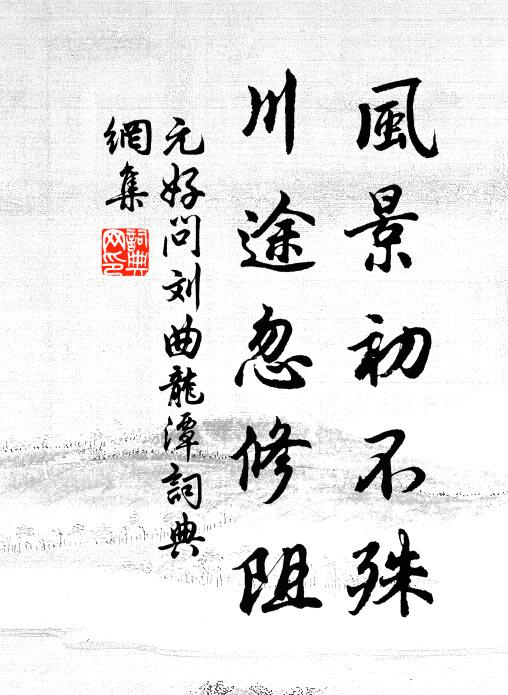 風景初不殊
川途忽修阻
元好问刘曲龍潭詞典
網集
詞典
网印